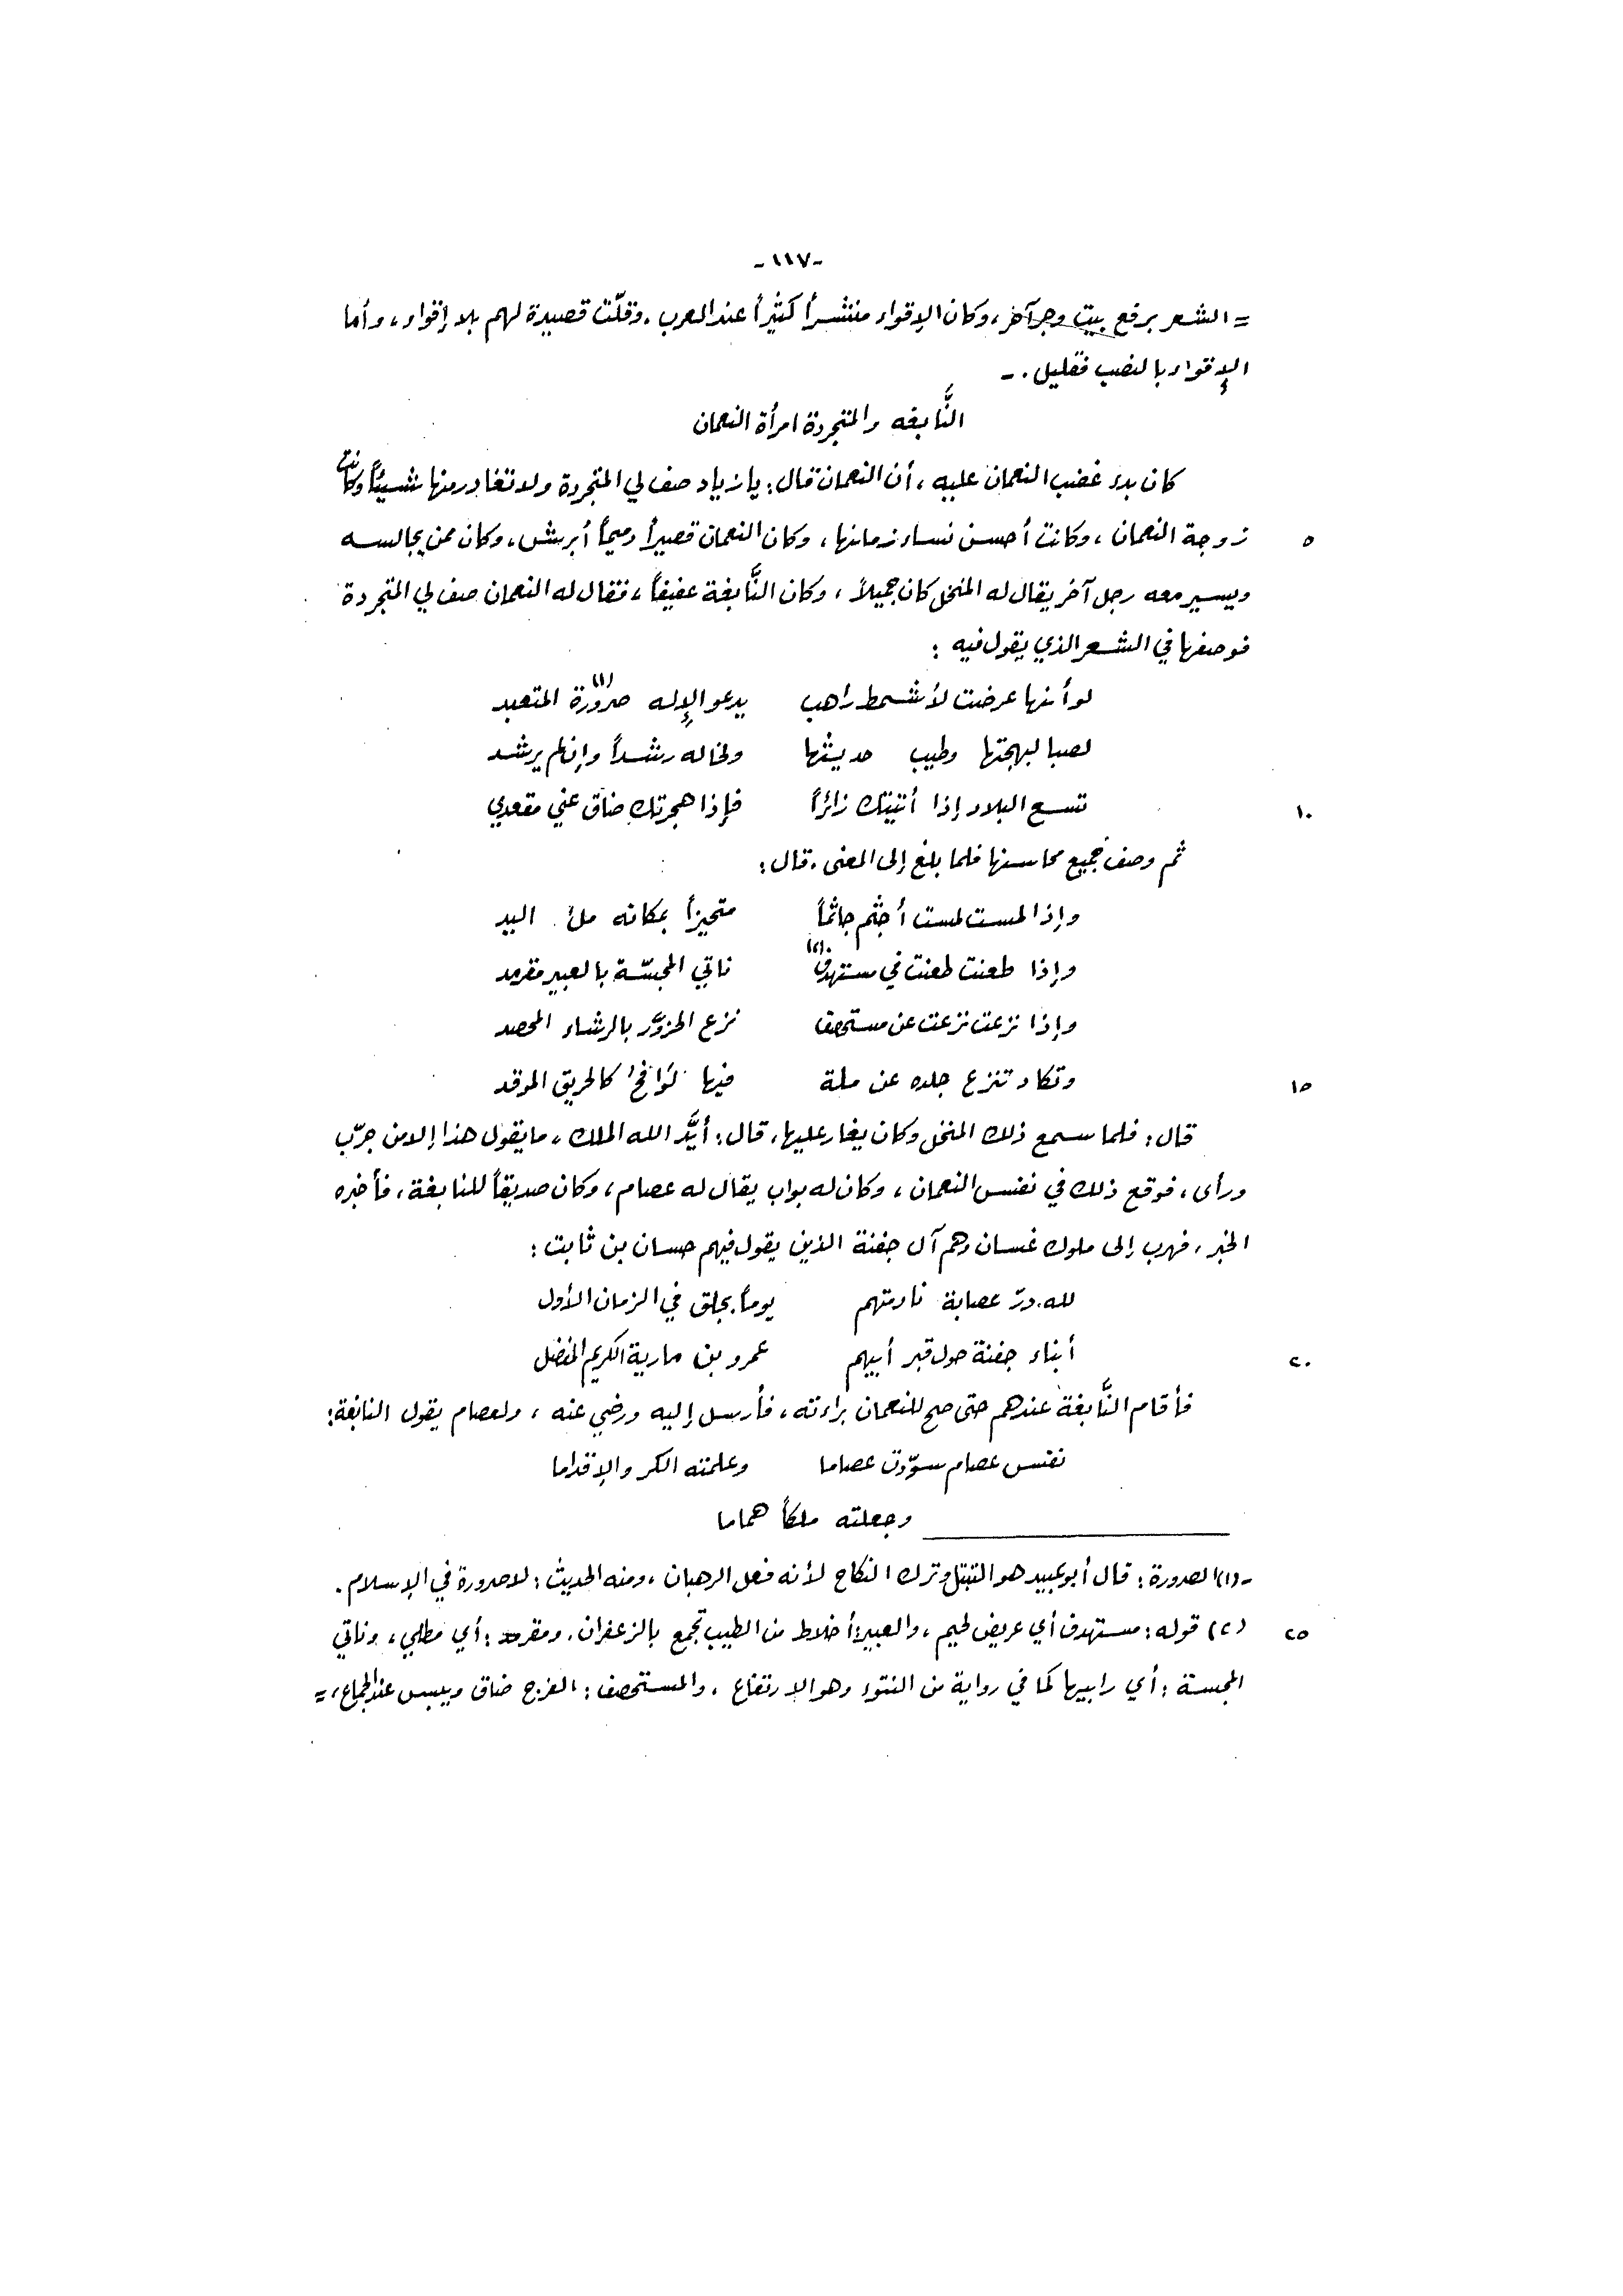 -١١٧-
= الشعر برفع بيت وجر آخر، وكان الإقواء منتشراً كثيراً عند العرب. وقلّت قصيدة لهم بلا إقواء، وأما
الإقواء بالنصب فقليل. -
النَّابغه والمتجردة امرأة النعمان
كان بدء غضب النعمان عليه، أن النعمان قال: يا زياد صف لي المتجردة ولا تغادر منها شيئاً وكانت
٥ زوجة النعمان، وكانت أحسن نساء زمانها، وكان النعمان قصيراً دميماً أبرش، وكان ممن يجالسه
ويسير معه رجل آخر يقال له المنخل كان جميلاً، وكان النَّابغة عفيفاً، فقال له النعمان صف لي المتجردة
فوصفها في الشعر الذي يقول فيه:
لو أنها عرضت لأشمط راهب يدعو الإله صرورة المتعبد (١)
لصبا لبهجتها وطيب حديثها ولخاله رشداً وإن لم يرشد
١٠ تسع البلاد إذا أتيتك زائراً فإذا هجرتك ضاق عني مقعدي
ثم وصف جميع محاسنها فلما بلغ إلى المعنى. قال:
وإذا لمست لمست أجثم جاثماً متحيزاً بمكانه ملئ اليد
وإذا طعنت طعنت في مستهدف (٢) ناتي المجسّة بالعبير مقرمد
وإذا نزعت نزعت عن مستحصف نزع الحزوَّر بالرشاء المحصد
١٥ وتكاد تنزع جلده عن ملة فيها لَوَافحُ كالحريق الموقد
قال: فلما سمع ذلك المنخل وكان يغار عليها، قال: أيَّد الله الملك، ما يقول هذا إلا من جرّب
ورأى، فوقع ذلك في نفس النعمان، وكان له بواب يقال له عصام، وكان صديقاً للنابغة، فأخبره
الخبر، فهرب إلى ملوك غسان وهم آل جفنة الذين يقول فيهم حسان بن ثابت:
لله درّ عصابة نادمتهم يوماً بجلق في الزمان الأول
٢٠ أبناء جفنة حول قبر أبيهم عمرو بن مارية الكريم المفضل
فأقام النَّابغة عندهم حتى صح للنعمان براءته، فأرسل إليه ورضي عنه، ولعصام يقول النابغة:
نفس عصام سوّدت عصاما وعلمته الكر والإقداما
وجعلته ملكاً هماما
-(١) الصرورة: قال أبو عبيد هو التبتل وترك النكاح لأنه فعل الرهبان، ومنه الحديث: لا صرورة في الإسلام.
٢٥ (٢) قوله: مستهدف أي عريض لحيم، والعبير: أخلاط من الطيب تجمع بالزعفران. ومقرمد: أي مطلي، وناتي
المجسة: أي رابيها كما في رواية من النتوء وهو الارتفاع. والمستحصف: الفرج ضاق ويبس عند الجماع، =